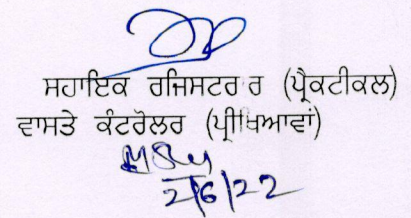 ਸਹਾਇਕ ਰਜਿਸਟਰ ਰ (ਪ੍ਰੈਕਟੀਕਲ)
ਵਾਸਤੇ ਕੰਟਰੋਲਰ (ਪ੍ਰੀਖਿਆਵਾਂ)
2/6/22